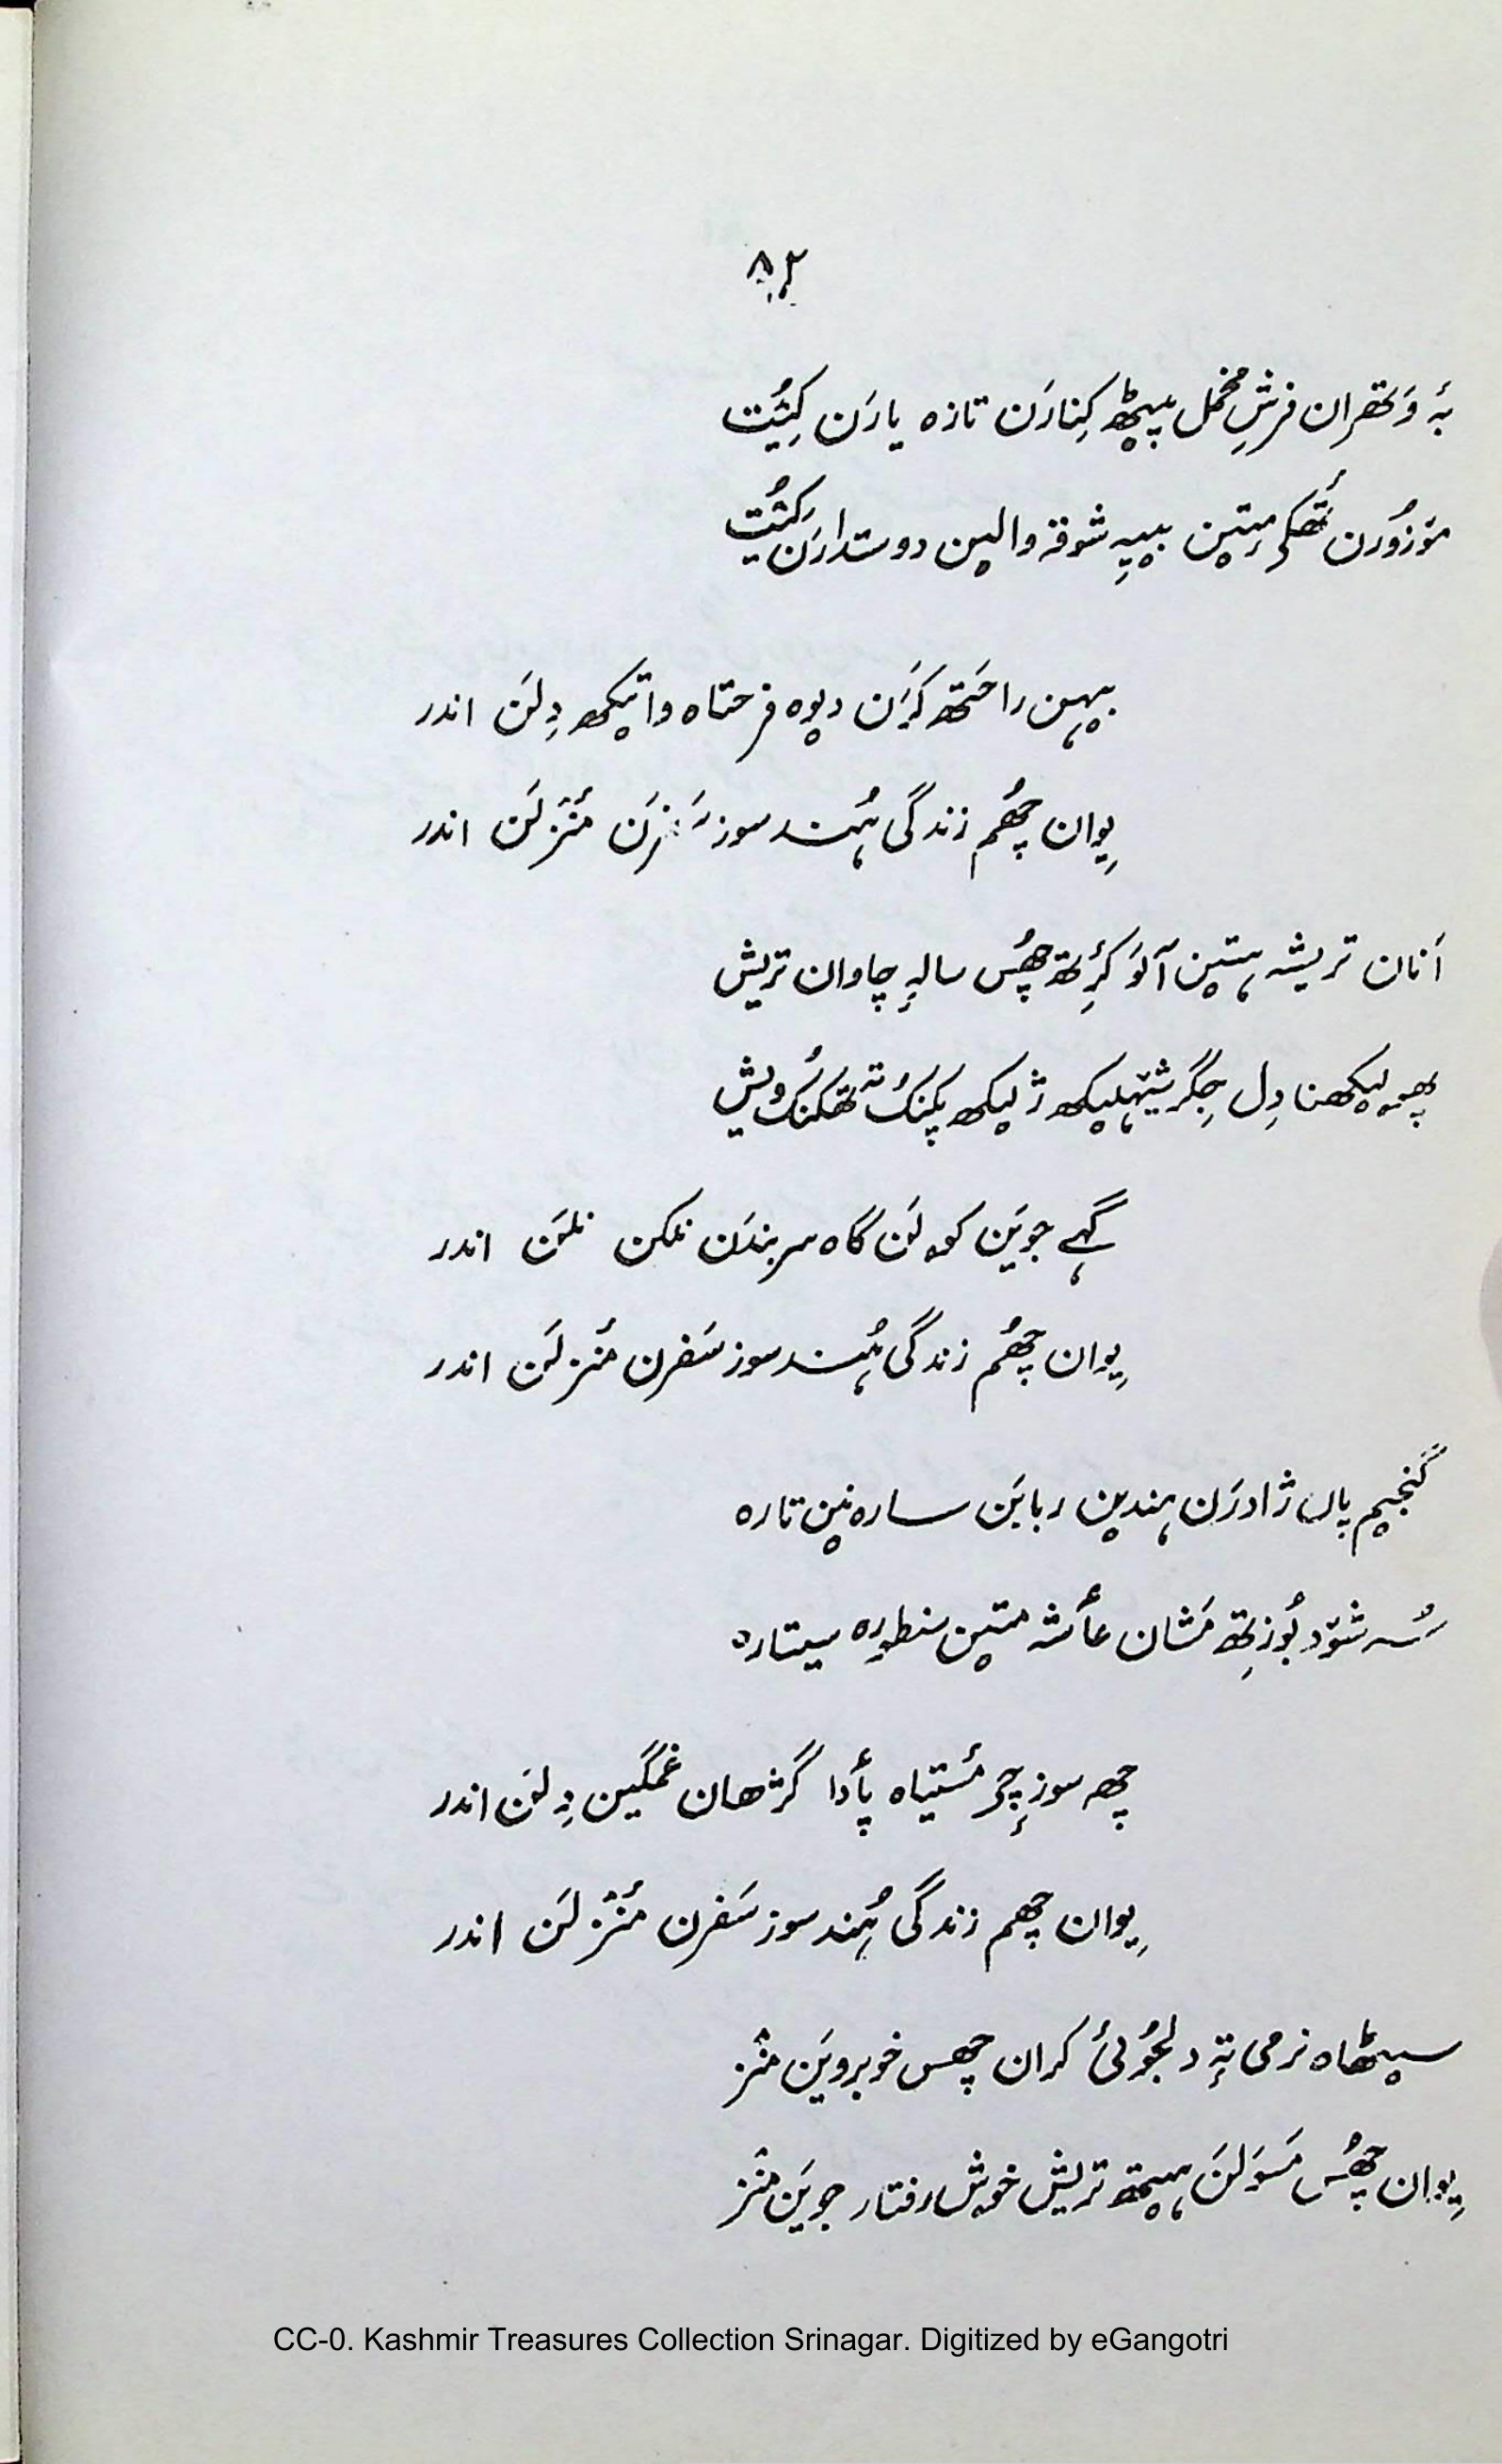 ۸۲
بہٕ وَتھران فرشِ مخمل پیٹھ کِنارَن تازہ یارَن کِیُت
موٚزوٗرن تھٔکۍ مٕتیٚن بییہِ شوقہٕ والیٚن دوستدارَن کیُت
بیہن راحتھ کَرَن دیوہ فرحتاہ واتیکھ دِلَن اندر
یِوان چھُم زندگی ہُند سوز سَفرَن مَنٛزلَن اندر
اَنان تریشہ ہتیٚن آلَو کٔرِتھ چھُس سالہِ چاوان تریش
پھۄلیکھنا دِل جِگر شیہلیکھ ژلیکھ پکنُک تہٕ تھکنُک ویش
گہے جویَن کولَن گاہ سربندَن نلکن نلَن اندر
یِوان چھُم زندگی ہُند سوز سَفرن مَنٛزلَن اندر
گنجیم بال ژادرَن ہندیٚن رباین سارہ نیٚن تارہ
سُہ شوٚد بوٗزِتھ مَشان عأشہ متیٚن سنطورہ سیتارہ
چھہ سوزٕچ مستیاہ پأدا گژھان غمگین دِلَن اندر
یِوان چھم زندگی ہُند سوز سَفرن مَنٛزلَن اندر
سیٹھاہ نرمی تہٕ دلجوٗئی کران چھس خوبرویَن منٛز
یِوان چھُس مَسوَلَن ہیتھ تریش خوش رفتار جویَن منٛز
CC-0. Kashmir Treasures Collection Srinagar. Digitized by eGangotri